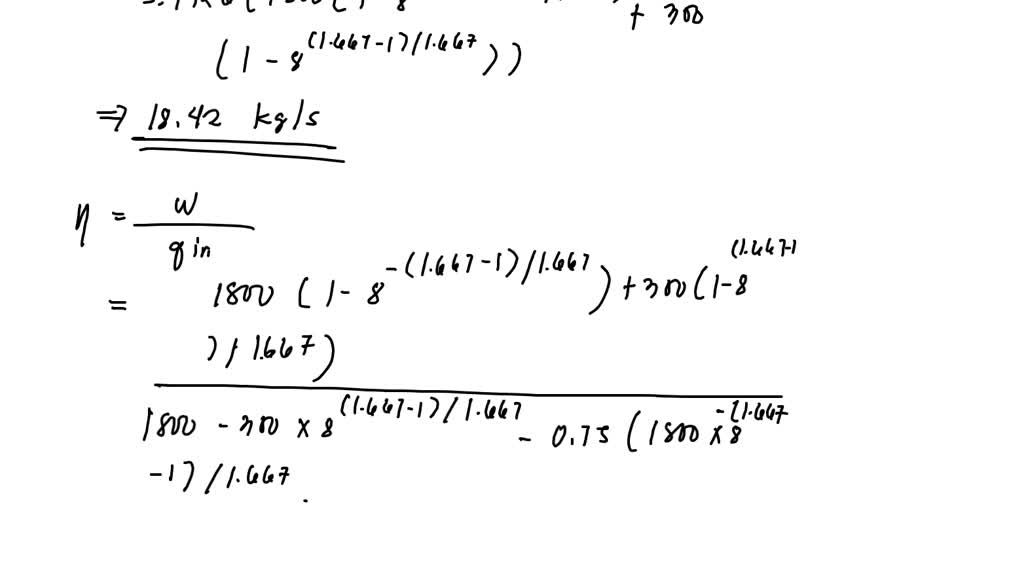 + 300
(1 - 8^(1.667-1)/1.667))
⇒ 18.42 kg/s
η = W
q in
= 1800 (1 - 8^-(1.667-1)/1.667) + 300 (1-8^(1.667-1
)/1.667)
1800 - 300 × 8^(1.667-1)/1.667 - 0.75 (1800 × 8^-(1.667
-1)/1.667